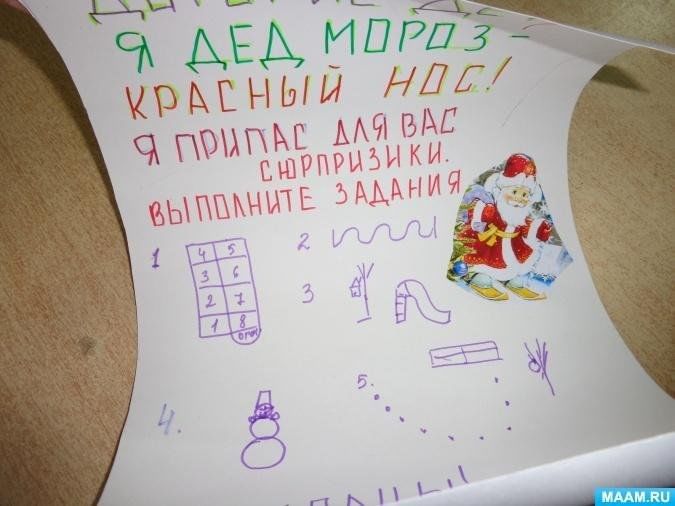 Я ДЕД МОРОЗ -
КРАСНЫЙ НОС!
Я ПРИПАС ДЛЯ ВАС
СЮРПРИЗИКИ.
ВЫПОЛНИТЕ ЗАДАНИЯ
1
4 5
3 6
2 7
1 8
2
3
4.
5.
MAAM.RU